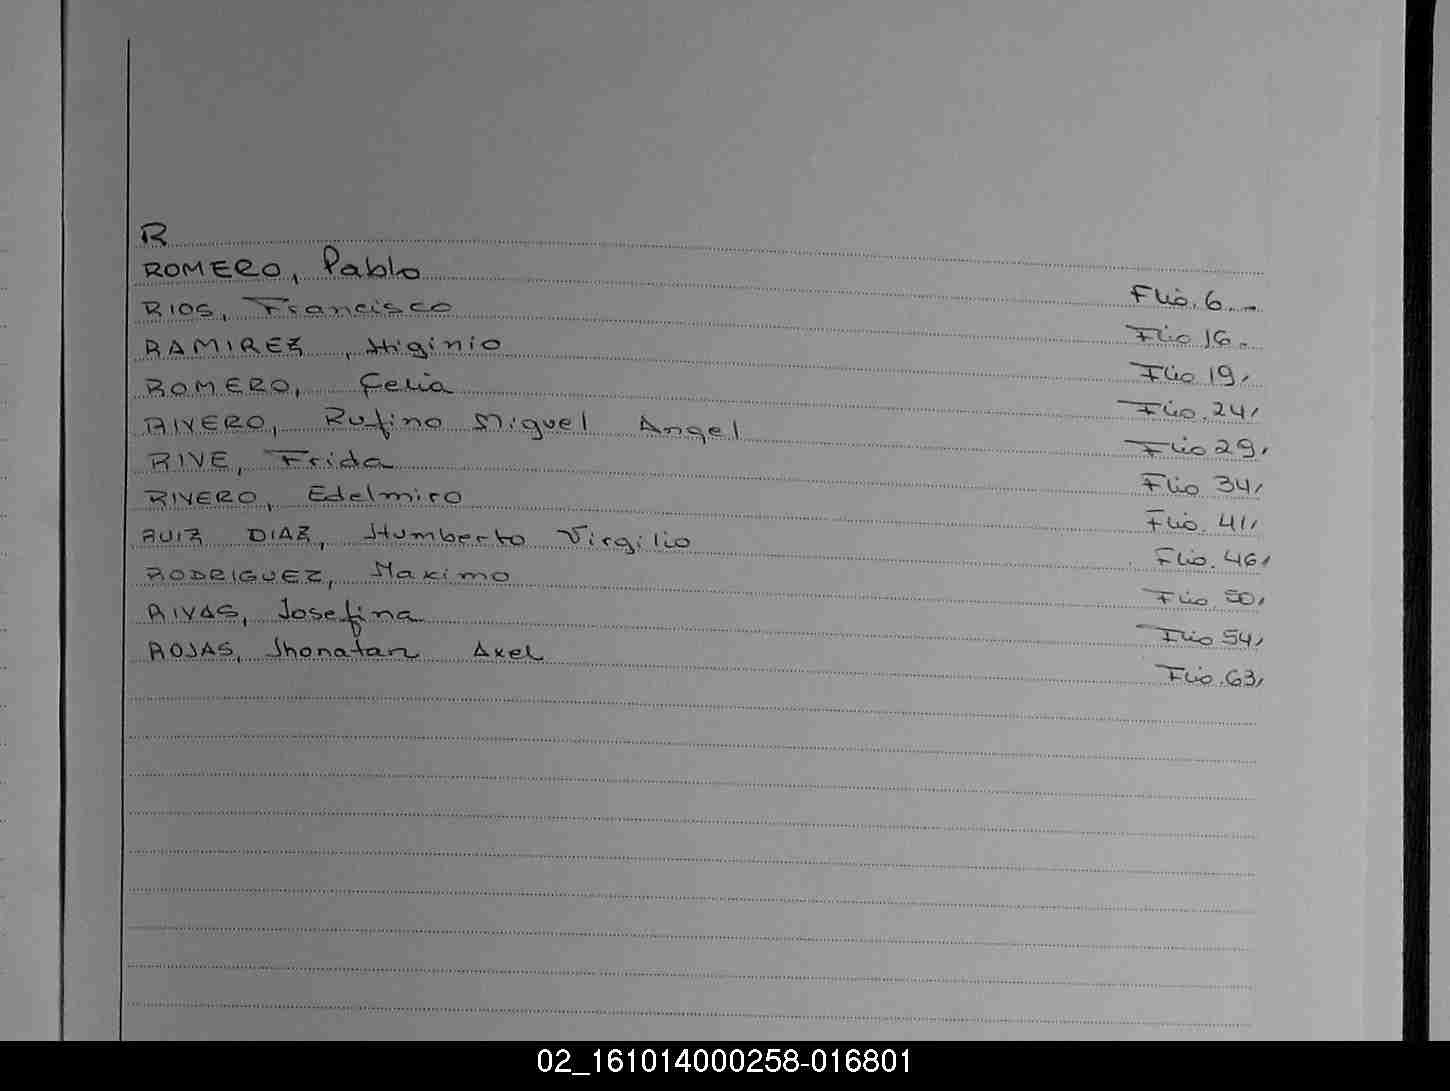 R
ROMERO, Pablo Flio. 6.-
RIOS, Francisco Flio 16.
RAMIREZ, Higinio Flio 19,
ROMERO, Felia Flio. 24,
RIVERO, Rufino Miguel Angel Flio 29,
RIVE, Frida Flio 34,
RIVERO, Edelmiro Flio. 41,
RUIZ DIAZ, Humberto Virgilio Flio. 46,
RODRIGUEZ, Maximo Flio. 50,
RIVAS, Josefina Flio 54,
ROJAS, Jhonatan Axel Flio. 63,
02_161014000258-016801